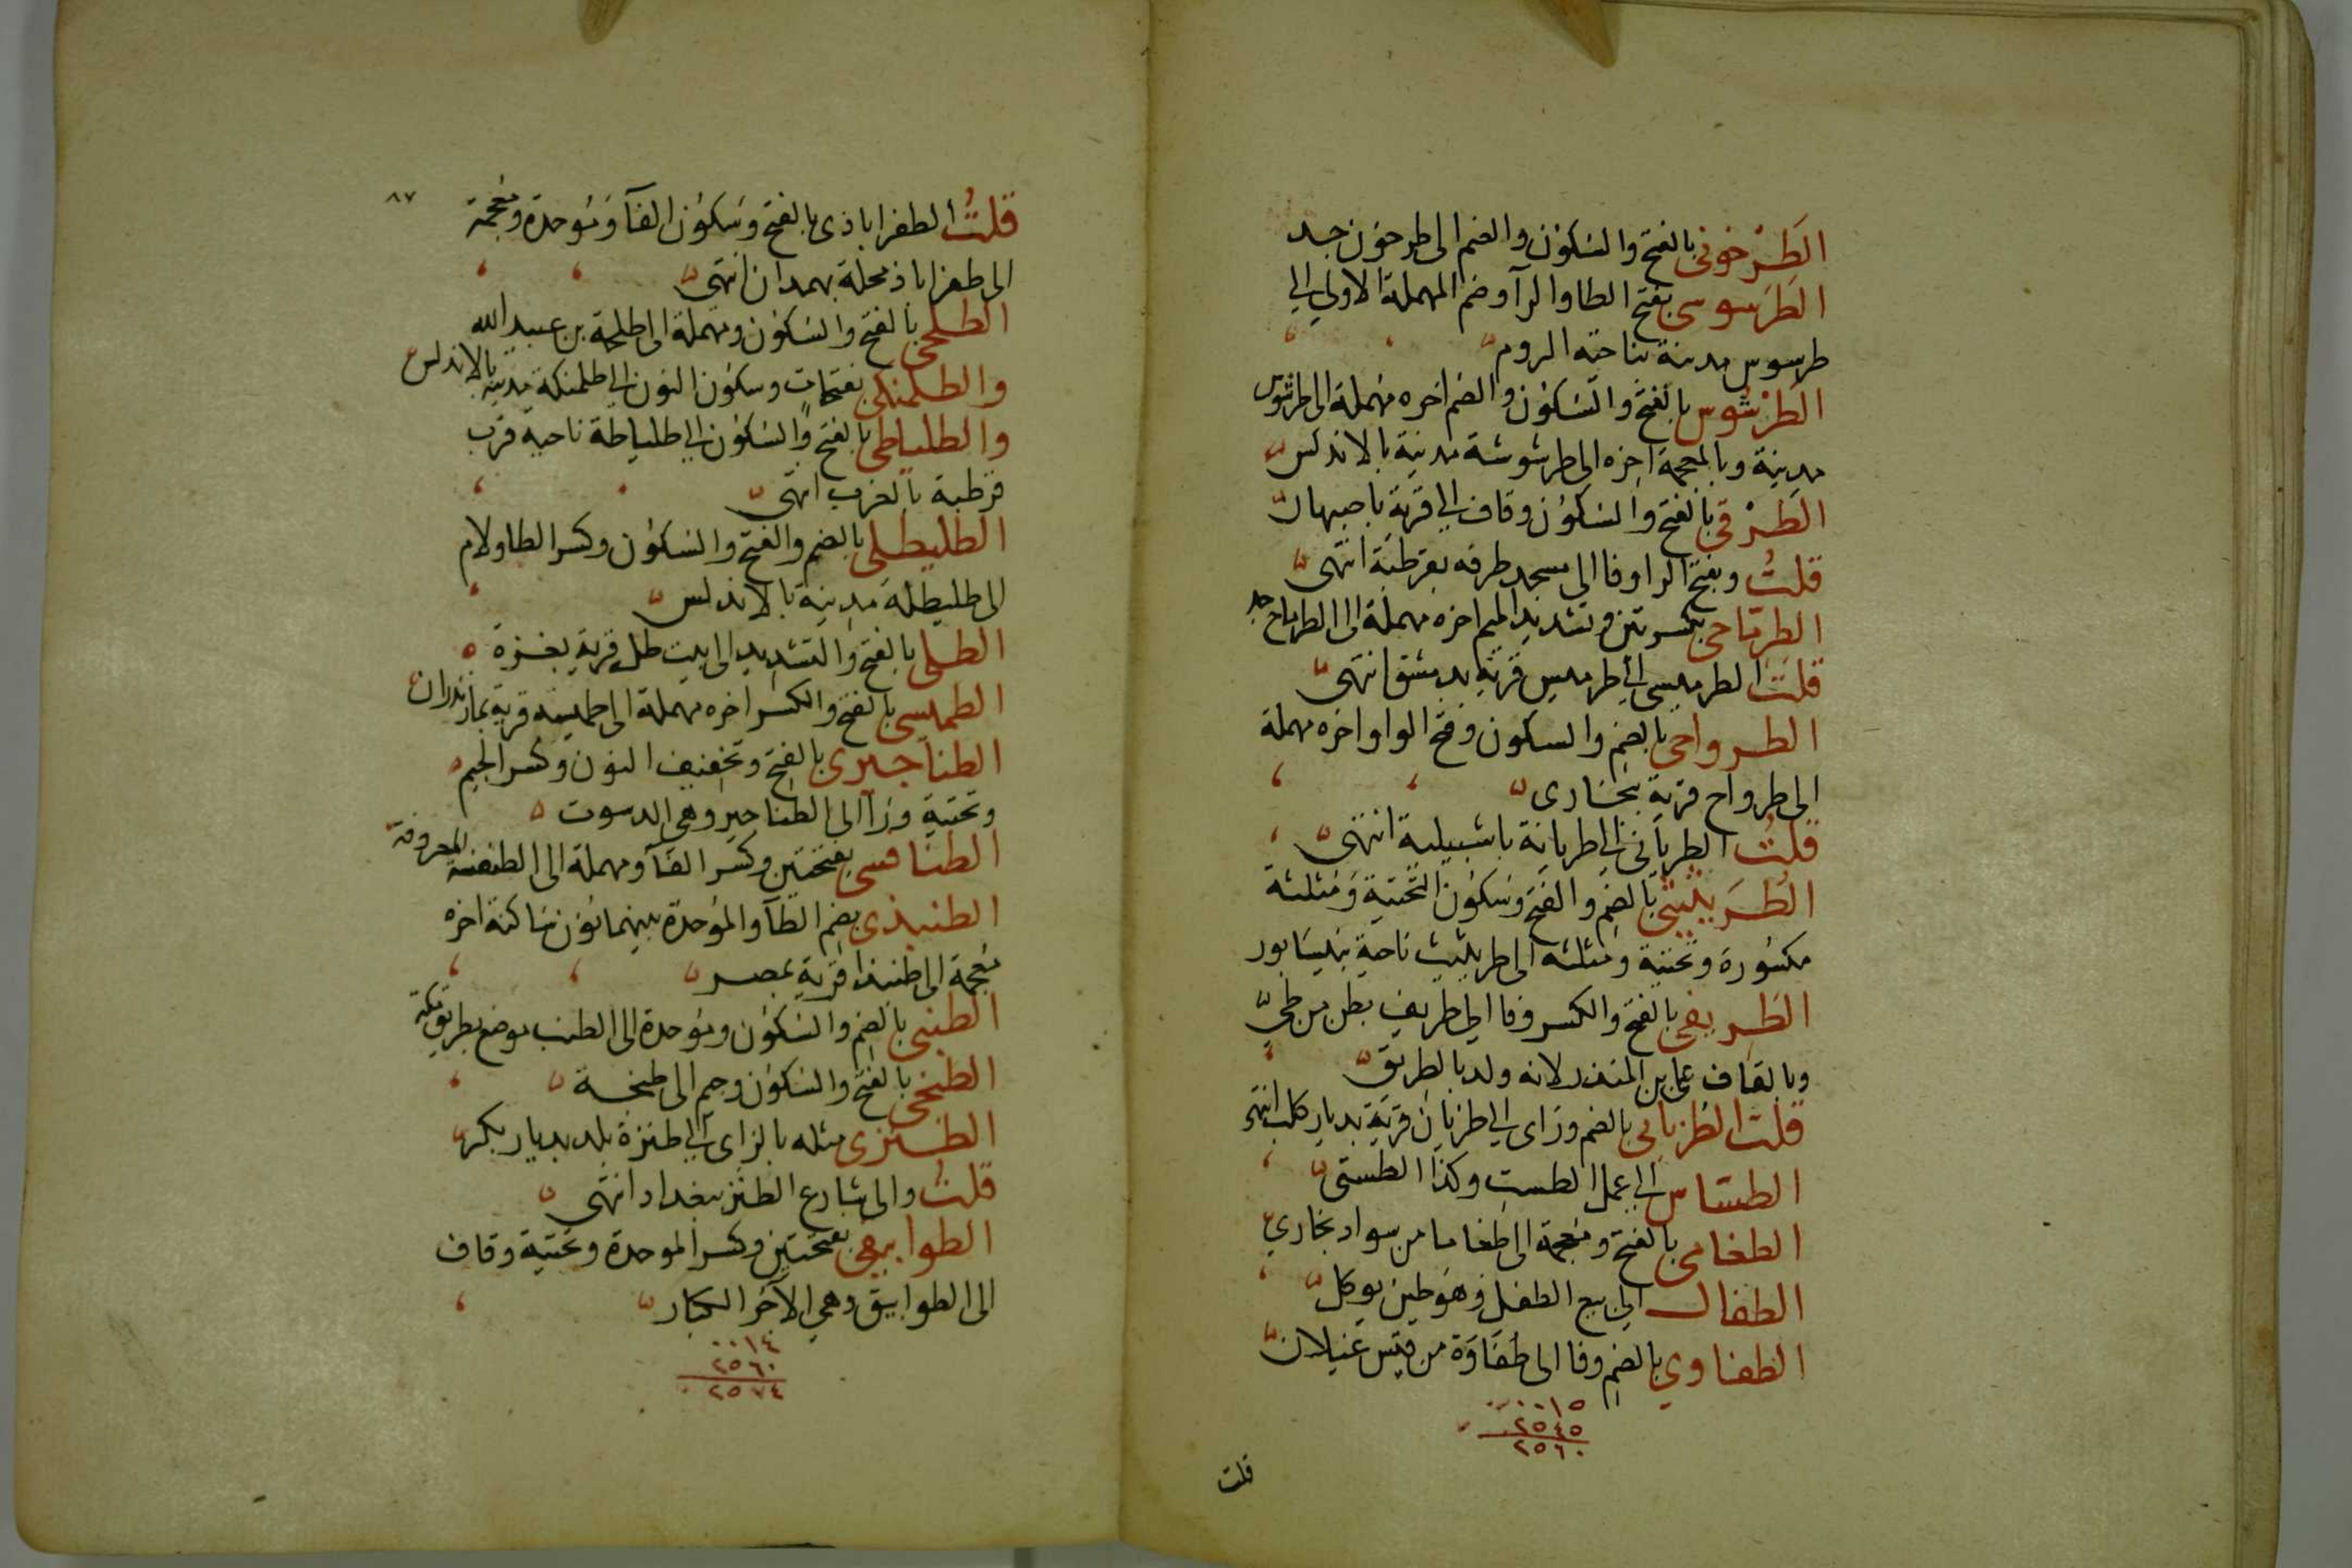 الطَرْخونى بالفتح والسكون والضم الى طرخون جد
الطَرَسوسى بفتح الطا والرآ وضم المهملة الاولي الي
طرسوس مدينة بناحية الروم
الطَرْشُوس بالفتح والسكون والضم اخره مهملة الى طرشوس
مدينة وبالمعجمة اخره الى طرشوشة مدينة بالاندلس
الطَرْقى بالفتح والسكون وقاف الي قرية باصبهان
قلتُ وبفتح الرا وفا الى مسجد طرفه بقرطبة انتهى
الطرماحى بكسرتين وتشديد الميم اخره مهملة الى الطرماح جد
قلت الطرميسى الي طرميس قرية بدمشق انتهى
الطرواحى بالضم والسكون وفتح الواو اخره مهملة
الى طرواح قرية ببخارى
قلتُ الطريانى الي طريانة باشبيلية انتهى
الطُرَيثيثى بالضم والفتح وسكون التحتية ومثلثة
مكسورة وتحتية ومثلثه الى طريثيث ناحية بنيسابور
الطَرِيفى بالفتح والكسر وفا الي طريف بطن من طي
وبالقاف على بن المنذر لانه ولد بالطريق
قلت الطزيانى بالضم وزاى الي طزيان قرية بديار كلب انتهى
الطساس الي عمل الطست وكذا الطستى
الطغامى بالفتح ومعجمة الى طغاما من سواد بخاري
الطفال الي بيع الطفل وهو طين يوكل
الطفاوي بالضم وفا الى طُفَاوَة من قيس غيلان
٠٠١٥
٢٥٤٥
٢٥٦٠
قلت
٨٧
قلتُ الطفراباذى بالفتح وسكون الفآ وموحدة ومعجمة
الى طفراباذ محلة بهمدان انتهى
الطلحى بالفتح والسكون ومهملة الى طلحة بن عبيد الله
والطلمنكى بفتحات وسكون النون الي طلمنكة مدينة بالاندلس
والطلياطى بالفتح والسكون الي طلياطة ناحية قرب
قرطبة بالغرب انتهى
الطليطلى بالضم والفتح والسكون وكسر الطا ولام
الى طليطلة مدينة بالاندلس
الطلى بالفتح والتشديد الى بيت طل قرية بغزة
الطميسى بالفتح والكسر اخره مهملة الى طميسة قرية بمازندران
الطناجيرى بالفتح وتخفيف النون وكسر الجيم
وتحتية ورآ الى الطناجير وهى الدسوت
الطنافسى بفتحتين وكسر الفآ ومهملة الى الطنفسة المعروفة
الطنبذى بضم الطآ والموحدة بينهما نون ساكنة اخره
معجمة الى طنبذا قرية بمصر
الطنبى بالضم والسكون وموحدة الى الطنب موضع بطريق مكة
الطنجى بالفتح والسكون وجيم الى طنجة
الطنزى مثله بالزاى الي طنزة بلد بديار بكر
قلتُ والى شارع الطنز ببغداد انتهى
الطوابيقى بفتحتين وكسر الموحدة وتحتية وقاف
الى الطوابيق وهي الآجر الكبار
٠٠١٤
٢٥٦٠
٢٥٧٤